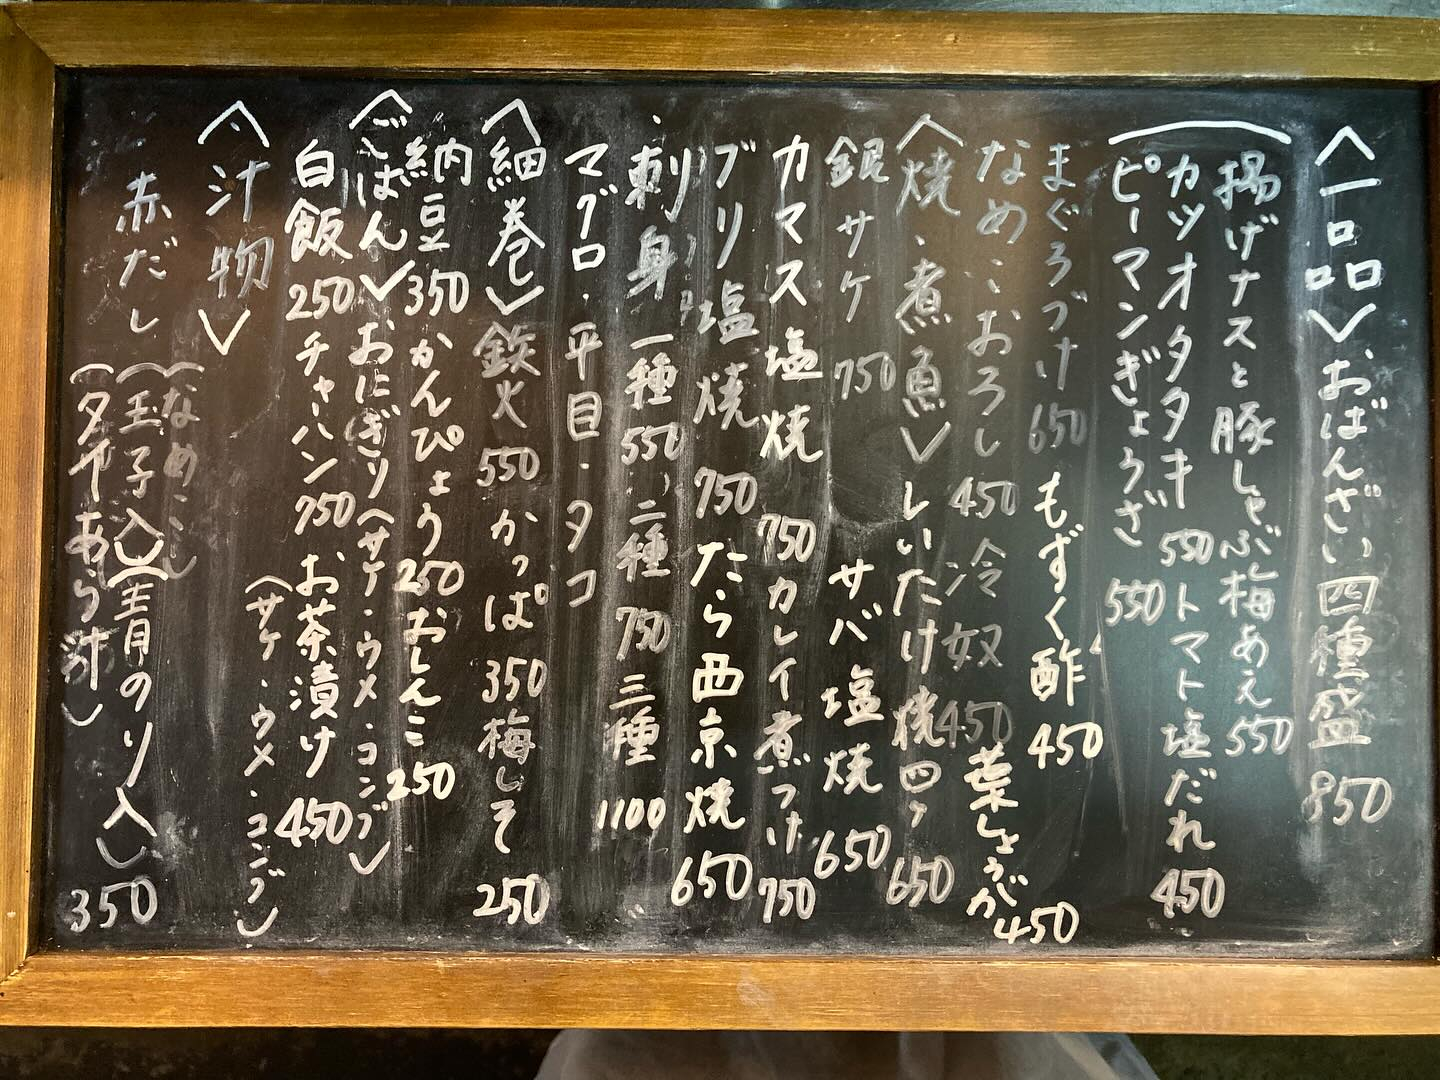 〈一品〉おばんざい四種盛 850
揚げナスと豚しゃぶ梅あえ 550
カツオタタキ 550 トマト塩だれ 450
ピーマンぎょうざ 550
まぐろづけ 650 もずく酢 450
なめこおろし 450 冷奴 450 葉しょうが 450
〈焼・煮魚〉しいたけ焼四ヶ 650
銀サケ 750 サバ塩焼 650
カマス塩焼 750 カレイ煮つけ 750
ブリ塩焼 750 たら西京焼 650
刺身 一種 550 二種 750 三種 1100
マグロ・平目・タコ
〈細巻〉鉄火 550 かっぱ 350 梅しそ 250
納豆 350 かんぴょう 250 おしんこ 250
〈ごはん〉おにぎり(サケ・ウメ・コンブ)
白飯 250 チャーハン 750 お茶漬け 450
(サケ・ウメ・コンブ)
〈汁物〉
赤だし (なめこ)
(玉子入)(青のり入)
(タイあら汁) 350